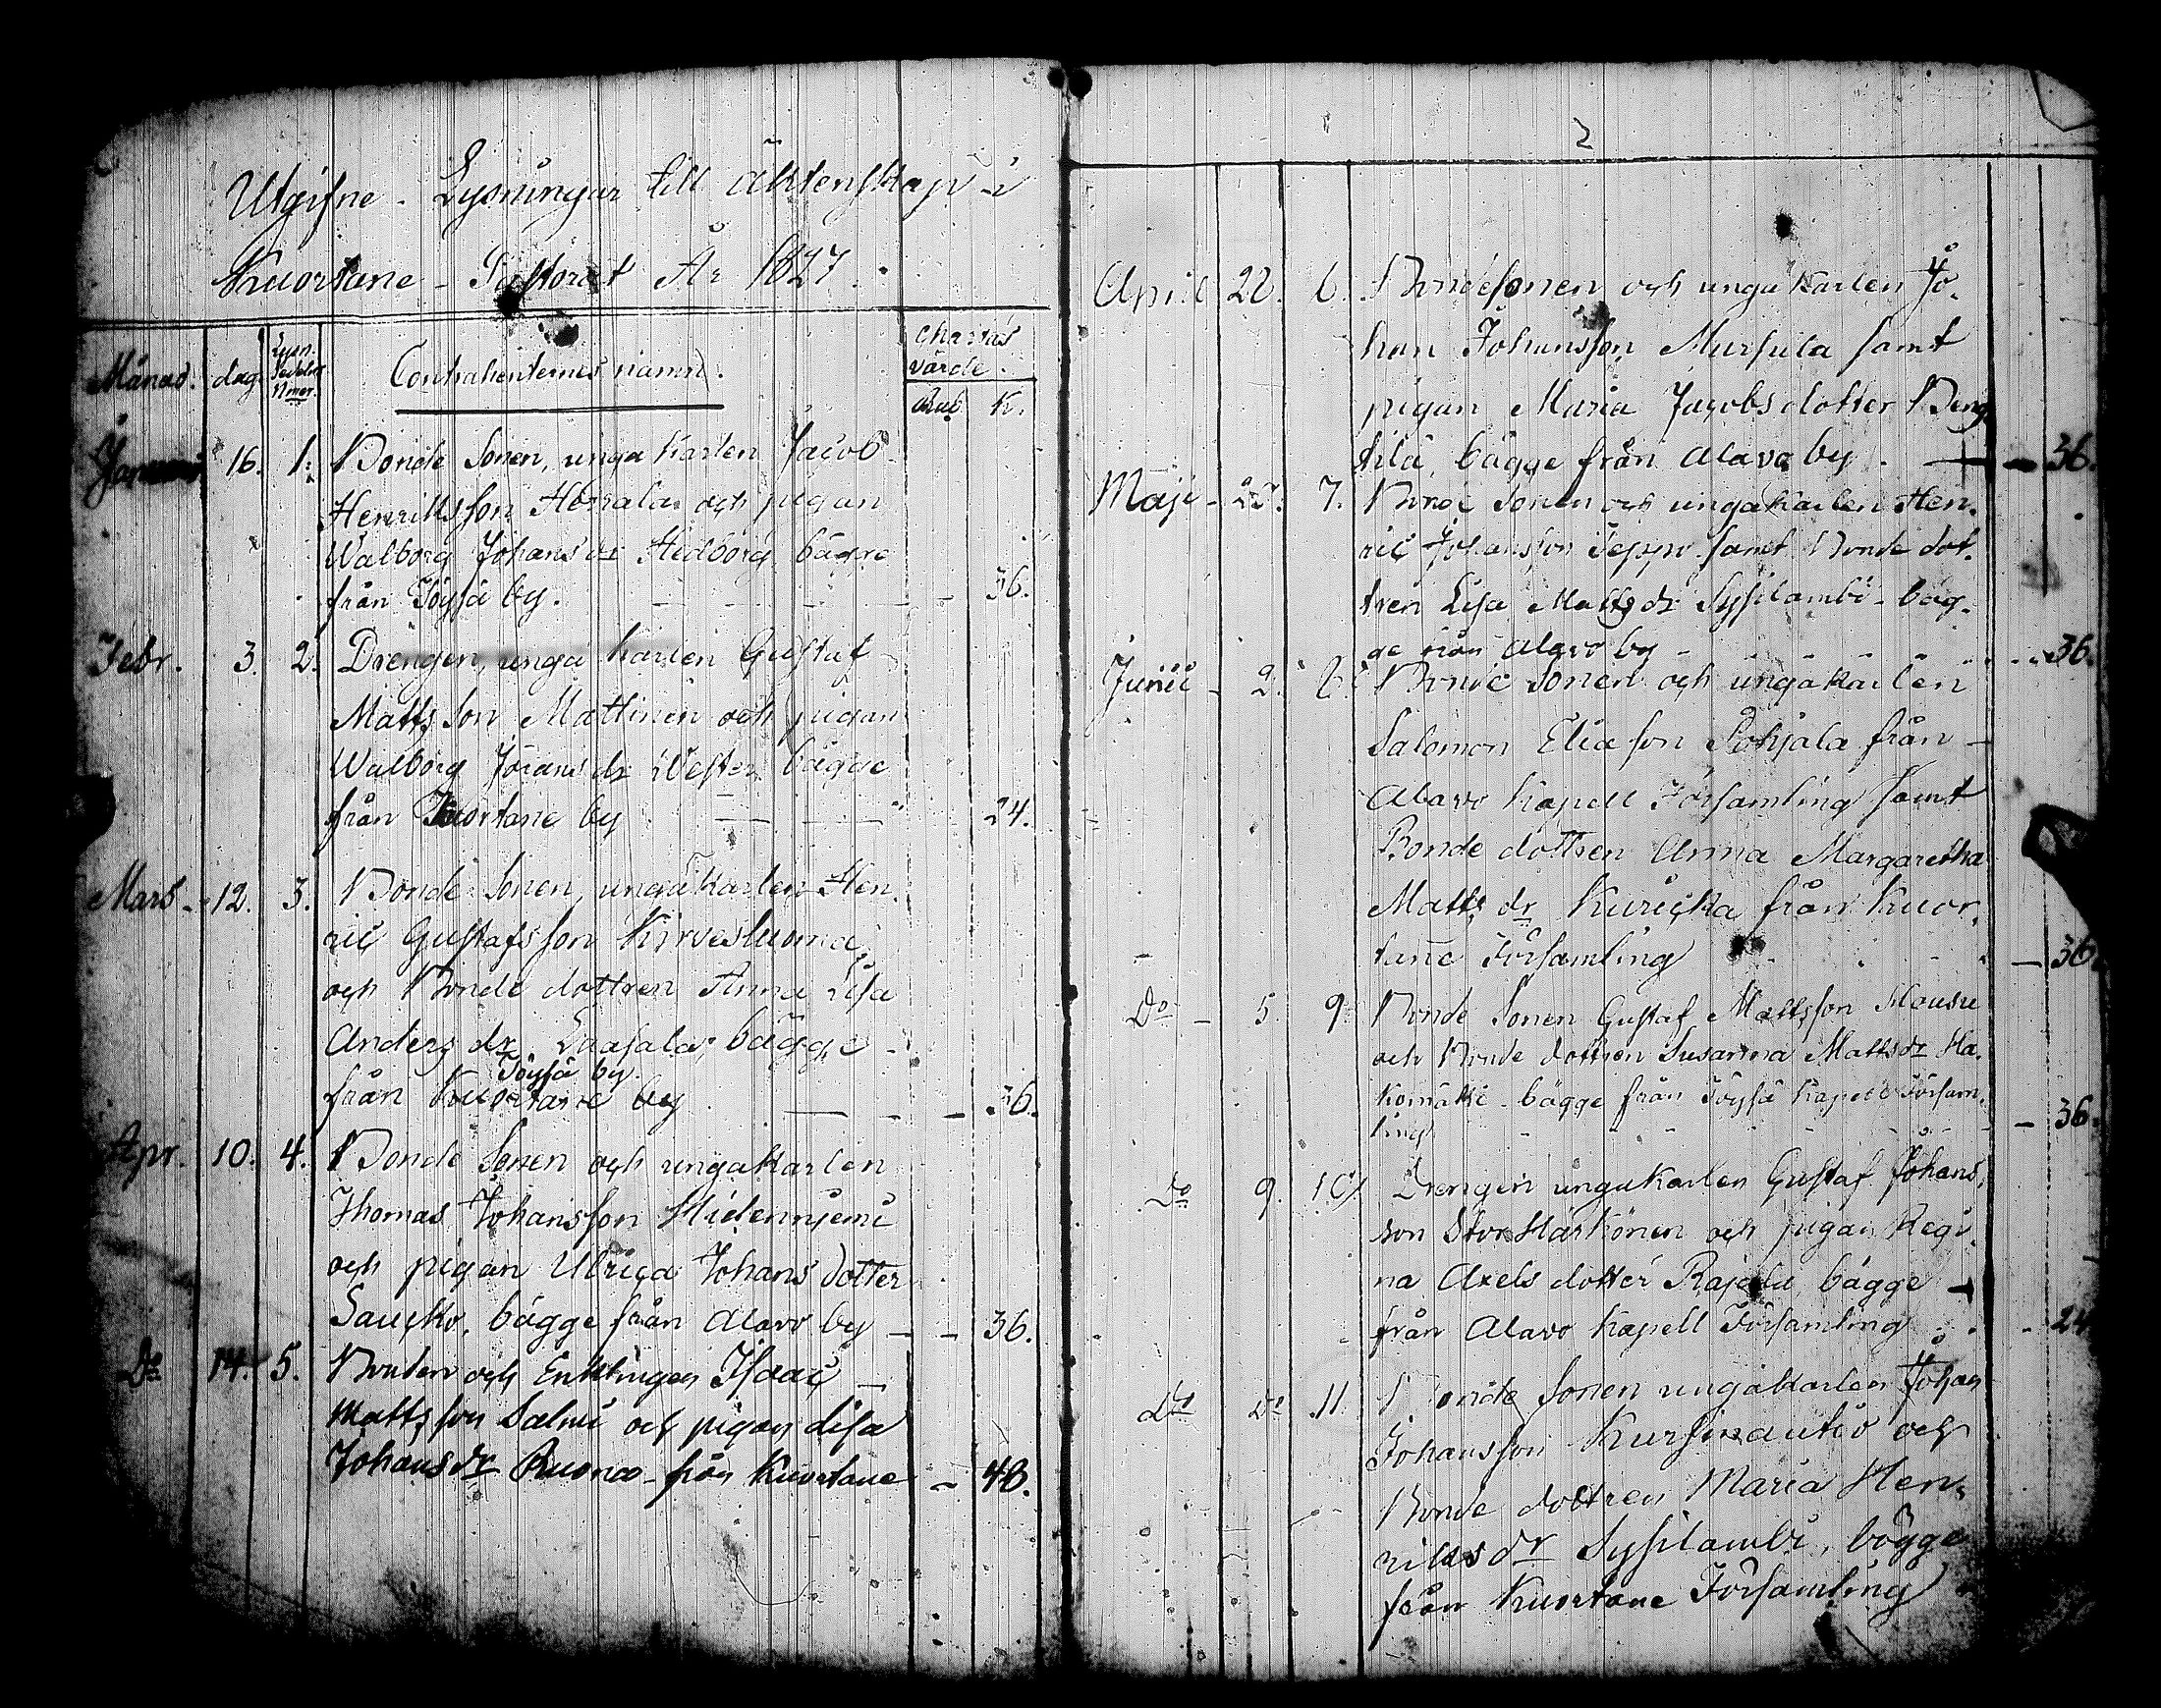 Utgifne - Lysningar till Äktenskap i
Kuortane - Pastorat År 1827.
Månad. dag. Lysn. Sedelns Nmer. Contrahenternes namn. Chartas värde.
Rub. K.
Januari 16. 1. Bonde Sonen, unga Karlen Jacob
Henriksson Herrala och pigan
Walborg Johans dr Hedborg, bägge
från Töysä by. - - - - 36.
Febr. 3. 2. Drengen, unga karlen Gustaf
Matts Son Mattinen och pigan
Walborg Jörans dr Wester bägge
från Kuortane by - - - 24.
Mars - 12. 3. Bonde Sonen, unga Karlen Hen-
ric Gustafsson Kirvesluoma
och Bonde dottren Anna Lisa
Anders dr Laasala, bägge
Töysä by.
från Kuortane by - - - 36.
Apr. 10. 4. Bonde Sonen och ungakarlen
Thomas Johansson Hidenniemi
och pigan Ulrica Johans dotter
Saucko, bägge från Alavo by - - 36.
Do 14. 5. Bonden och Enklingen Isaac
Mattsson Salmi och pigan Lisa
Johans dr Ruona från Kuortane - 48.
2
April 22. 6. Bondesonen och ungakarlen Jo-
han Johansson Mursula samt
pigan Maria Jacobs dotter Beng
tila, bägge från Alavo by. - 36.
Maji - 7. Bonde Sonen och ungakarlen Hen-
ric Johansson Seppo samt Bonde dot-
tren Lisa Matts dr Sysilambi - bäg-
ge från Alavo by - - - 36.
Junii - 2. 8. Bonde Sonen och ungakarlen
Salomon Eliason Pohjala från -
Alavo Kapell Församling samt
Bonde dottren Anna Margaretha
Matts dr Kuricka från Kuor-
tane Församling - - 36.
Do - 5. 9. Bonde Sonen Gustaf Mattsson
och Bonde dottren Susanna Matts dr Ha-
komäki - bägge från Töysä Kapell Försam-
ling - - - 36.
Do 9. 10. Drengen ungakarlen Gustaf Johans-
son Stor Härkönen och pigan Regi-
na Axels dotter Rajala, bägge
från Alavo Kapell Församling - 24
Do Do 11. Bonde Sonen ungakarlen Johan
Johansson Kursinautio och
Bonde dottren Maria Hen-
riks dr Sysilambi, bägge
från Kuortane Församling